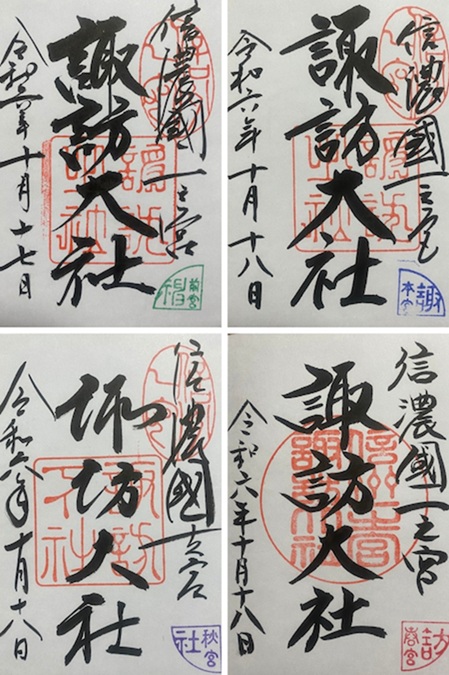 信濃國一之宮
諏訪大社
令和六年十月十七日
前宮
信濃國一之宮
諏訪大社
令和六年十月十八日
諏
本宮
信濃國一之宮
諏訪大社
令和六年十月十八日
秋宮
社
信濃國一之宮
諏訪大社
令和六年十月十八日
訪
春宮